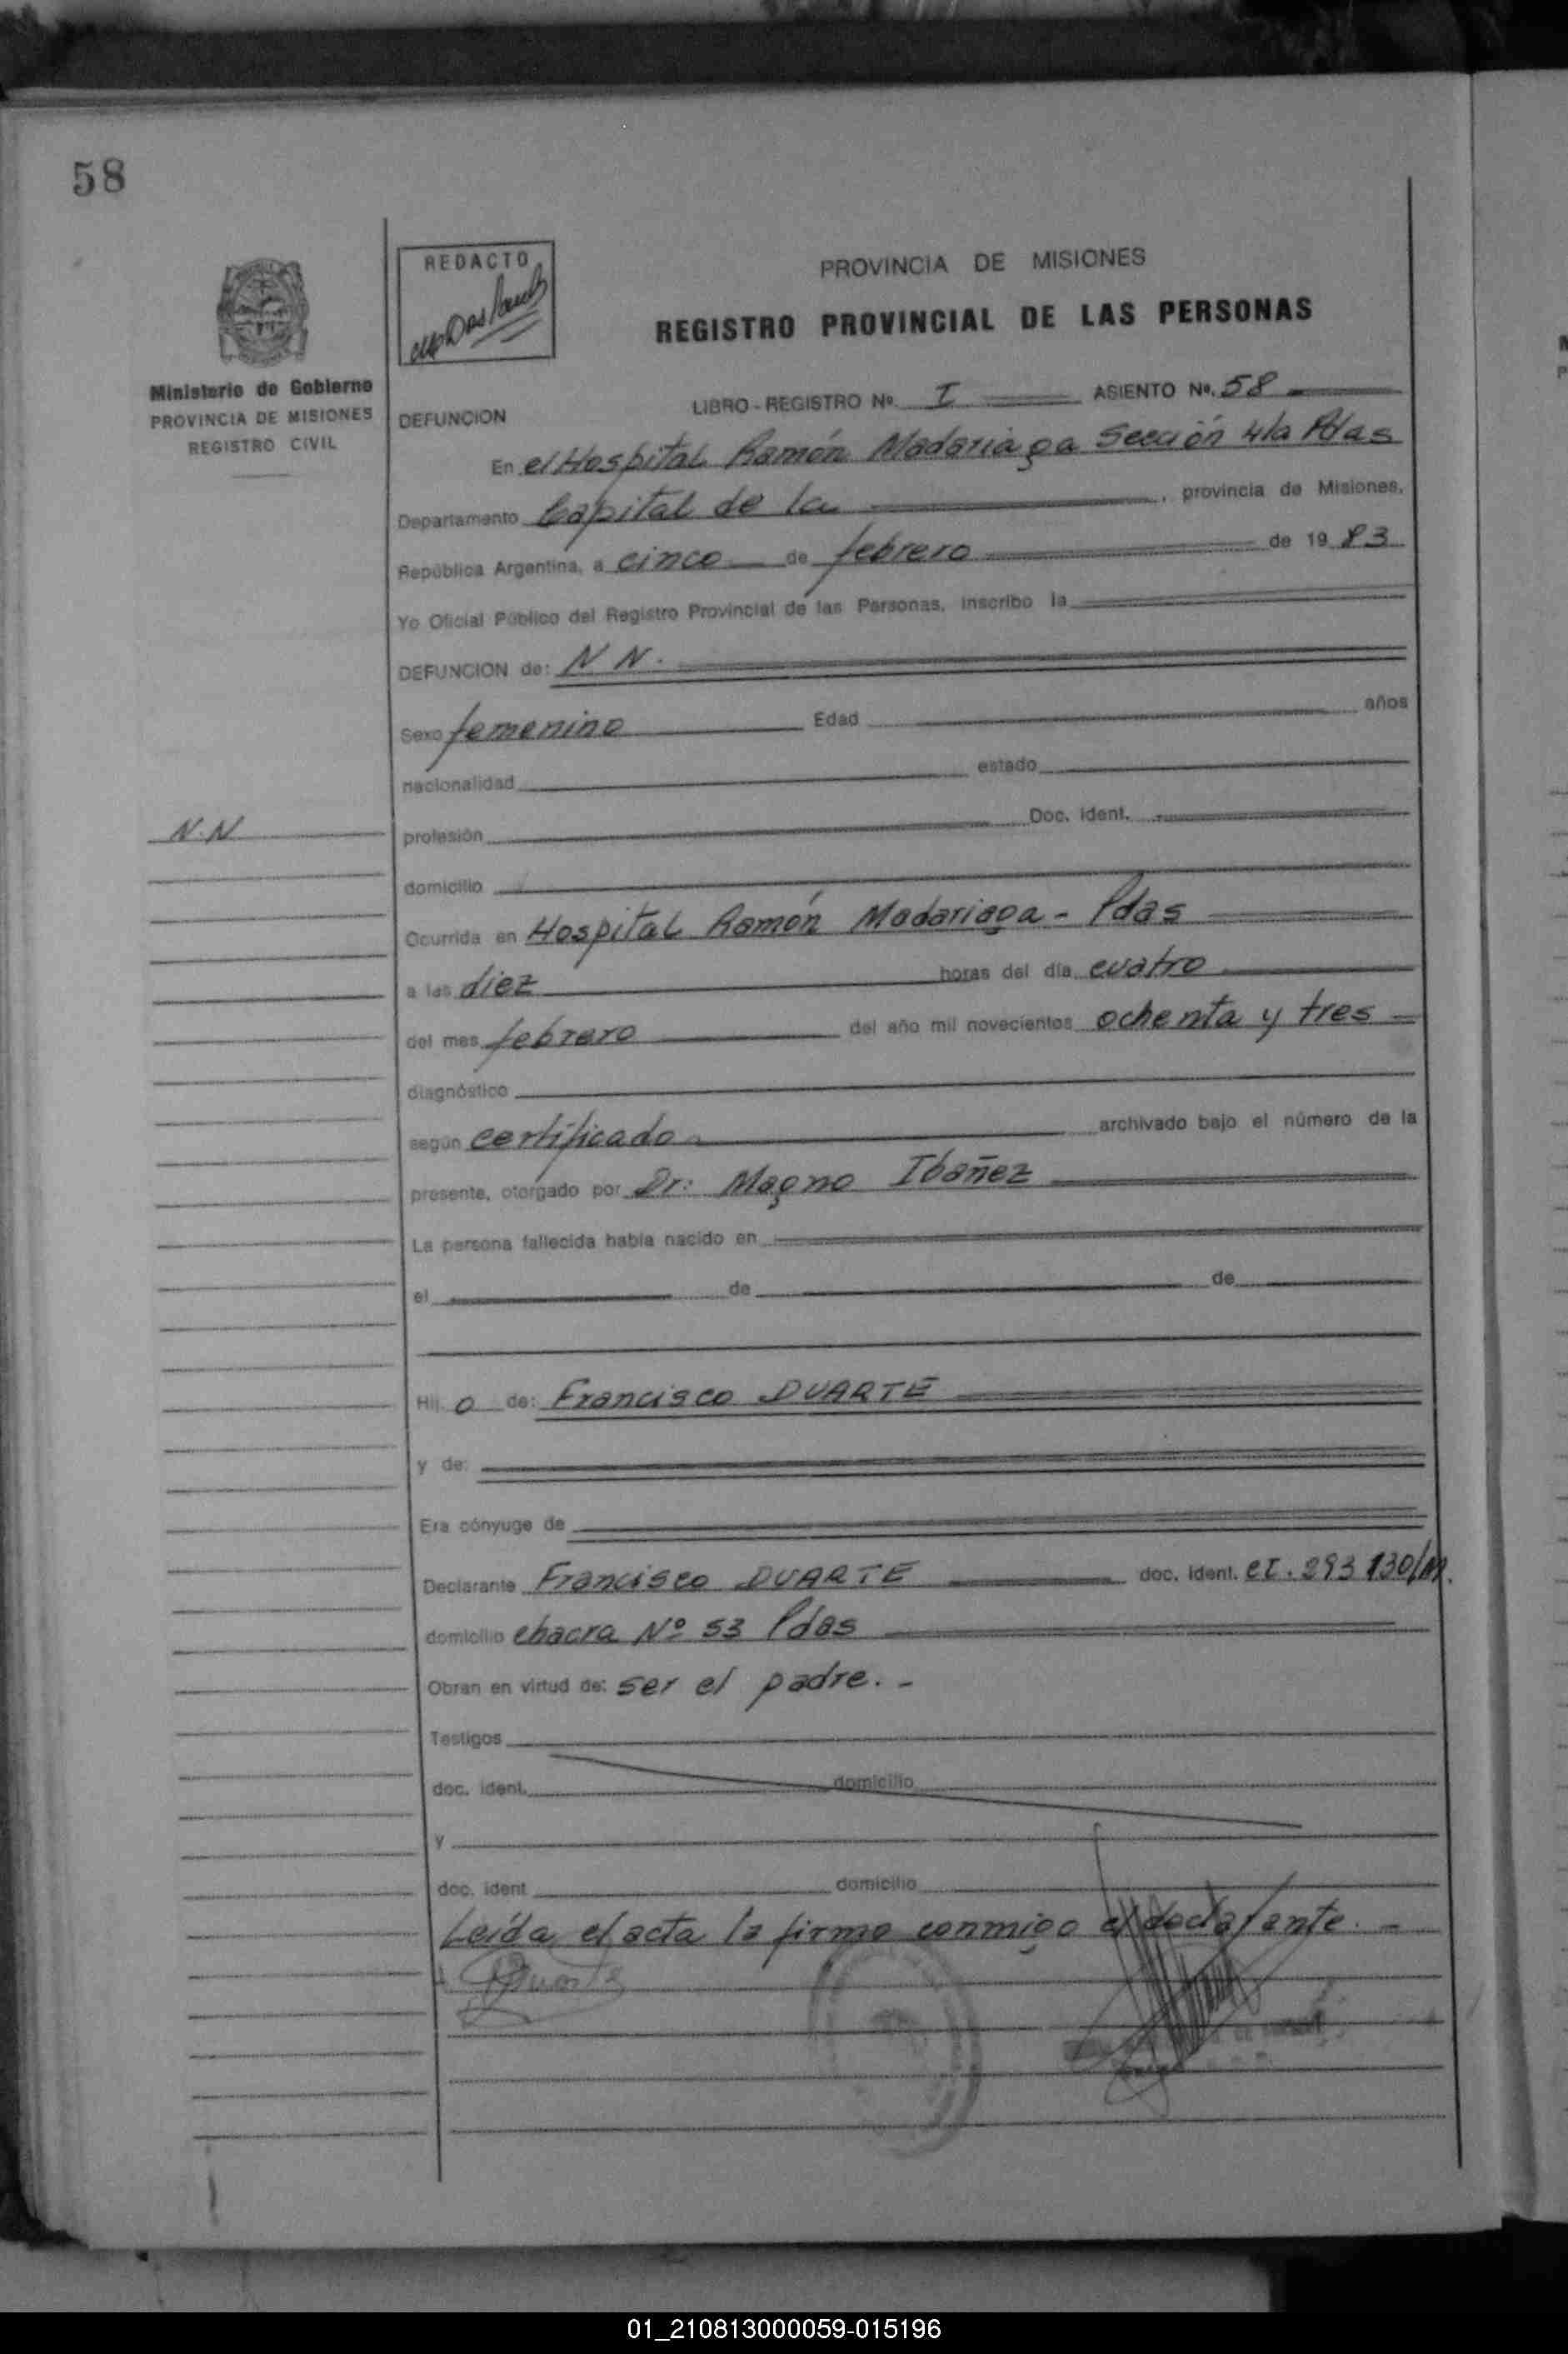 58
REDACTO
PROVINCIA DE MISIONES
REGISTRO PROVINCIAL DE LAS PERSONAS
Ministerio de Gobierno
PROVINCIA DE MISIONES
REGISTRO CIVIL
DEFUNCION
LIBRO - REGISTRO Nº I ASIENTO Nº. 58
En el Hospital Ramón Madariaga Sección 4ta Pdas
Departamento Capital de la , provincia de Misiones,
República Argentina, a cinco de febrero de 1983
Yo Oficial Público del Registro Provincial de las Personas, inscribo la
DEFUNCION de: N N.
Sexo femenino Edad años
nacionalidad estado
N.N
profesión Doc. ident.
domicilio
Ocurrida en Hospital Ramón Madariaga - Pdas
a las diez horas del día cuatro
del mes febrero del año mil novecientos ochenta y tres
diagnóstico
según certificado archivado bajo el número de la
presente, otorgado por Dr: Magno Ibañez
La persona fallecida había nacido en
el de de
Hij o de: Francisco DUARTE
y de:
Era cónyuge de
Declarante Francisco DUARTE doc. ident. CI. 293 130/M.
domicilio chacra Nº 53 Pdas
Obran en virtud de: ser el padre. -
Testigos
doc. ident. domicilio
y
doc. ident domicilio
Leída el acta la firma conmigo el declarante. -
01_210813000059-015196